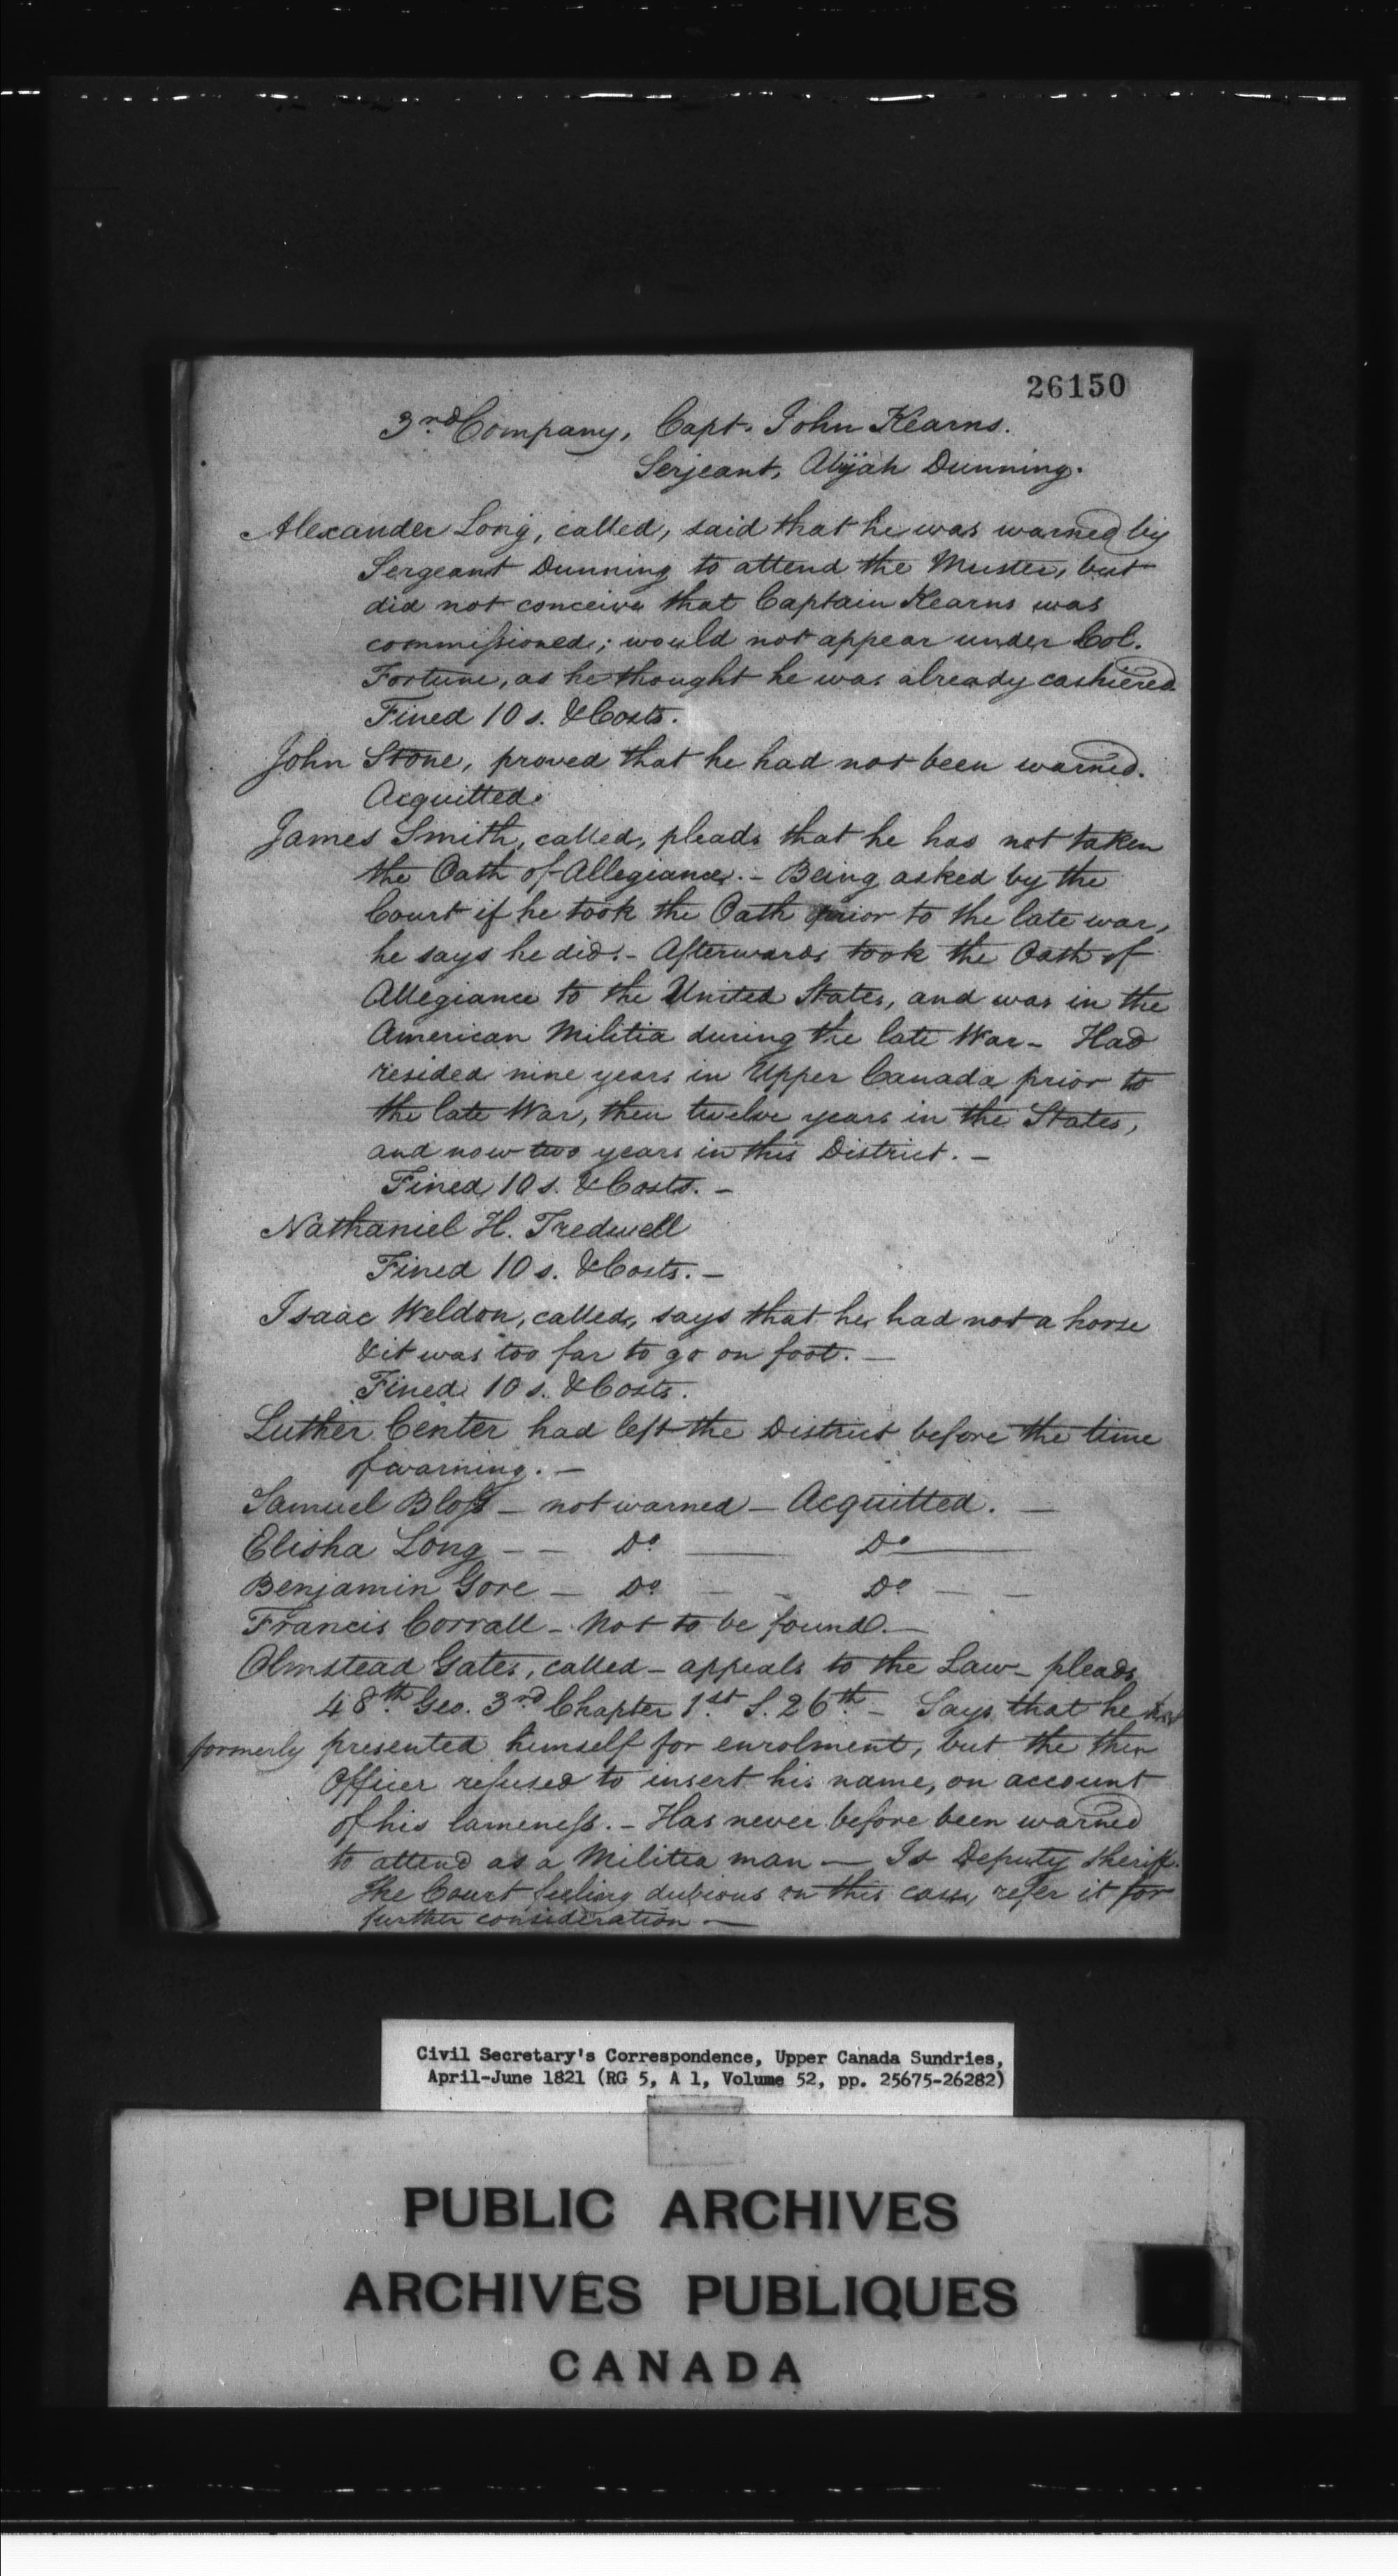 26150
3rd Company, Capt. John Kearns.
Serjeant, Abijah Dunning.
Alexander Long, called, said that he was warned by
Sergeant Dunning to attend the Muster, but
did not conceive that Captain Kearns was
commissioned; would not appear under Col.
Fortune, as he thought he was already cashiered
Fined 10 s. & Costs.
John Stone, proved that he had not been warned.
Acquitted.
James Smith, called, pleads that he has not taken
the Oath of Allegiance. - Being asked by the
Court if he took the Oath prior to the late war,
he says he did. - Afterwards took the Oath of
Allegiance to the United States, and was in the
American Militia during the late War - Had
resided nine years in Upper Canada prior to
the late War, then twelve years in the States,
and now two years in this District. -
Fined 10 s. & Costs. -
Nathaniel H. Tredwell
Fined 10 s. & Costs. -
Isaac Weldon, called, says that he had not a horse
& it was too far to go on foot. -
Fined 10 s. & Costs.
Luther Center had left the District before the time
of warning. -
Samuel Bloss - not warned - Acquitted. -
Elisha Long - - Do. — Do. —
Benjamin Gore - Do. - - Do. - -
Francis Corrall - Not to be found. -
Olmstead Gates, called - appeals to the Law - pleads
48th Geo. 3rd Chapter 1st S. 26th - Says that he had
formerly presented himself for enrolment, but the then
Officer refused to insert his name, on account
of his lameness. - Has never before been warned
to attend as a Militia man - Is Deputy Sheriff.
The Court feeling dubious on this case, refer it for
further consideration -
Civil Secretary's Correspondence, Upper Canada Sundries,
April-June 1821 (RG 5, A 1, Volume 52, pp. 25675-26282)
PUBLIC ARCHIVES
ARCHIVES PUBLIQUES
CANADA